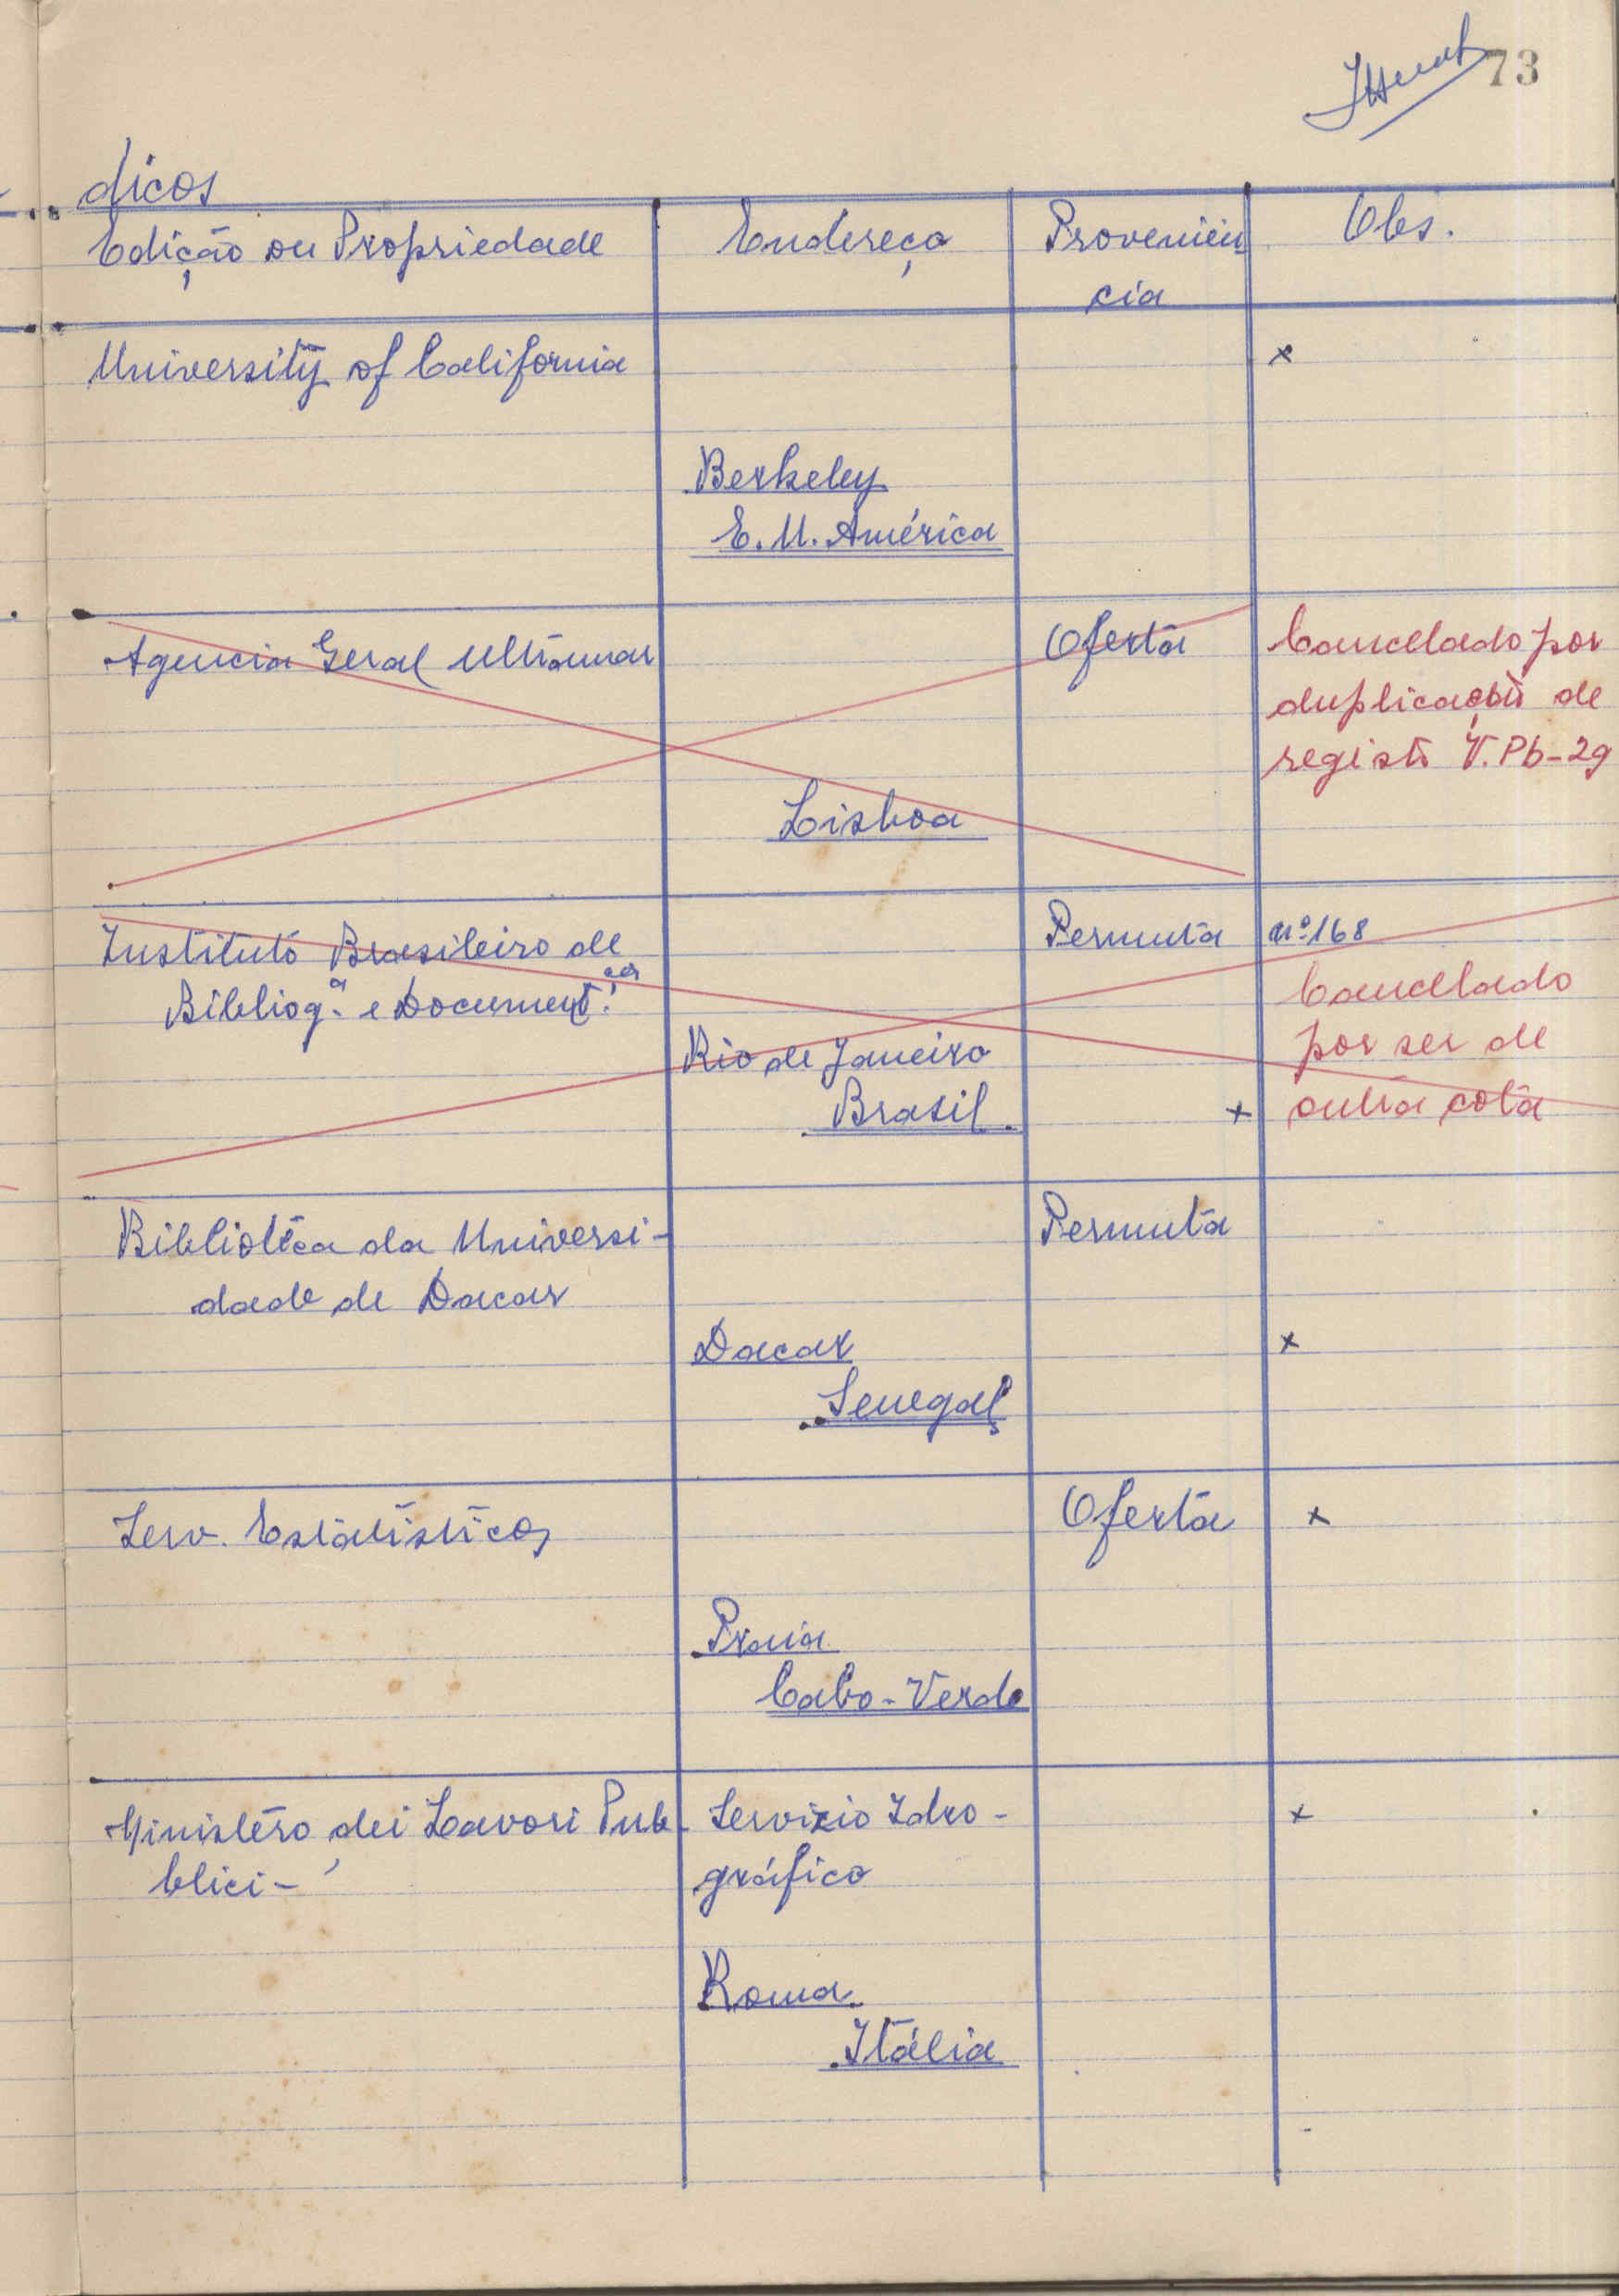 73
dicos
Edição ou Propriedade Endereço Proveniên Obs.
cia
University of California x
Berkeley
E. U. América
Agencia Geral Ultramar Oferta Cancelado por
duplicação de
registo V. Pb-29
Lisboa
Instituto Brasileiro de Permuta nº 168
Bibliog.ª e Document.ção Cancelado
Rio de Janeiro por ser de
Brasil x outra cota
Biblioteca da Universi- Permuta
dade de Dacar
Dacar x
Senegal
Serv. Estatísticos Oferta x
Praia
Cabo-Verde
Ministéro dei Lavori Pub- Servizio Idro- x
blici- gráfico
Roma
Itália